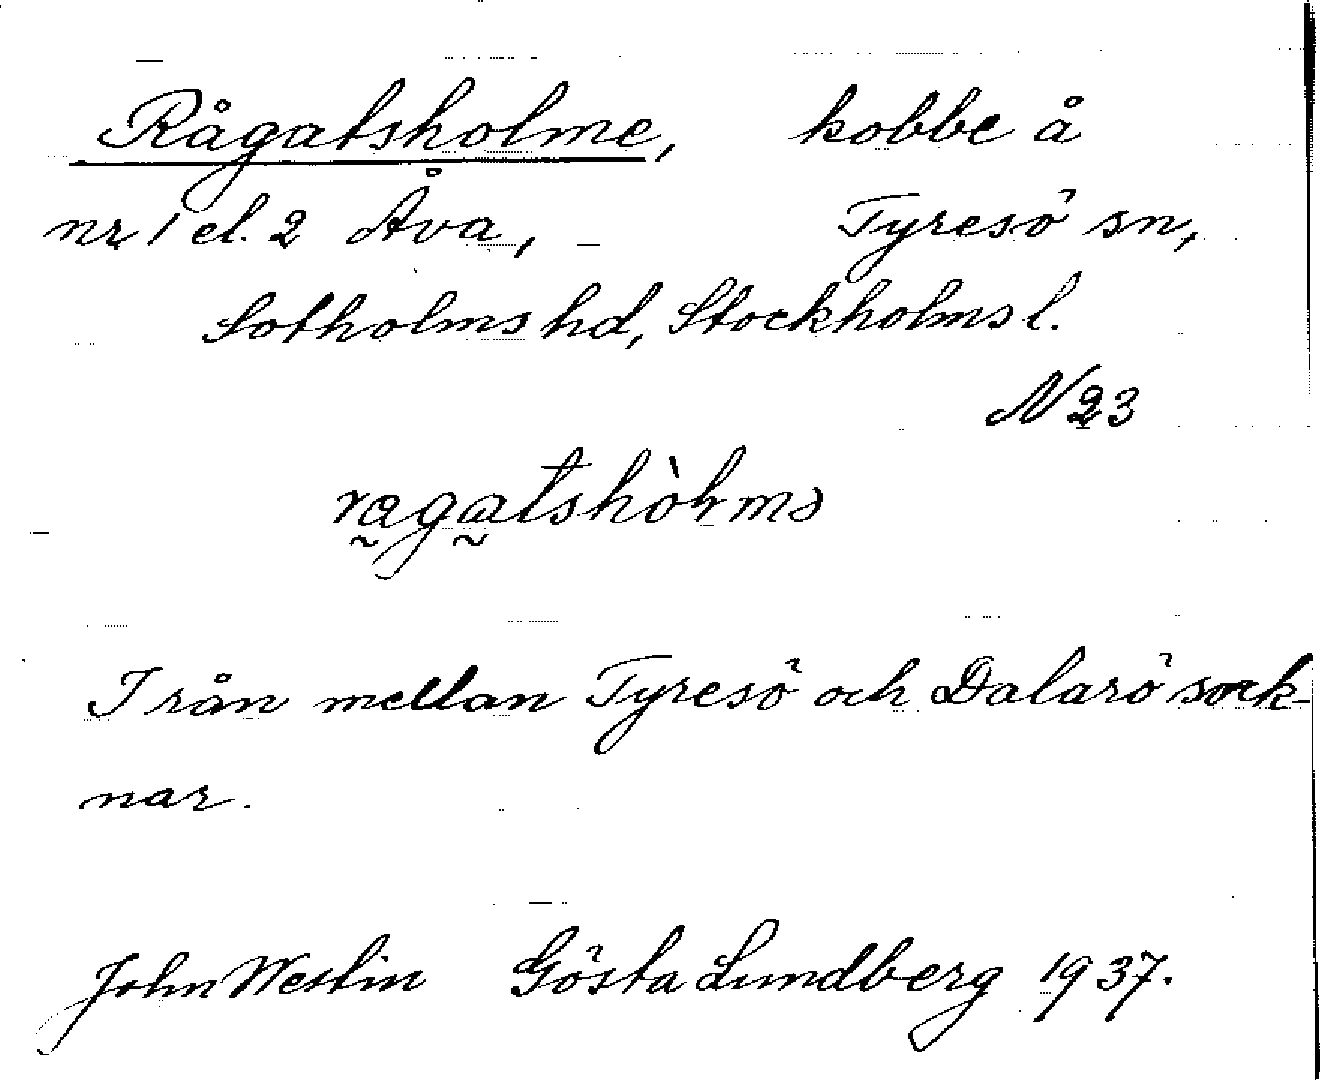 Rågatsholme, kobbe å
nr 1 el. 2 Åva, Tyresö sn,
Sotholms hd, Stockholms l.
N 23
I rån mellan Tyresö och Dalarö sock-
nar.
John Westin Gösta Lundberg 1937.